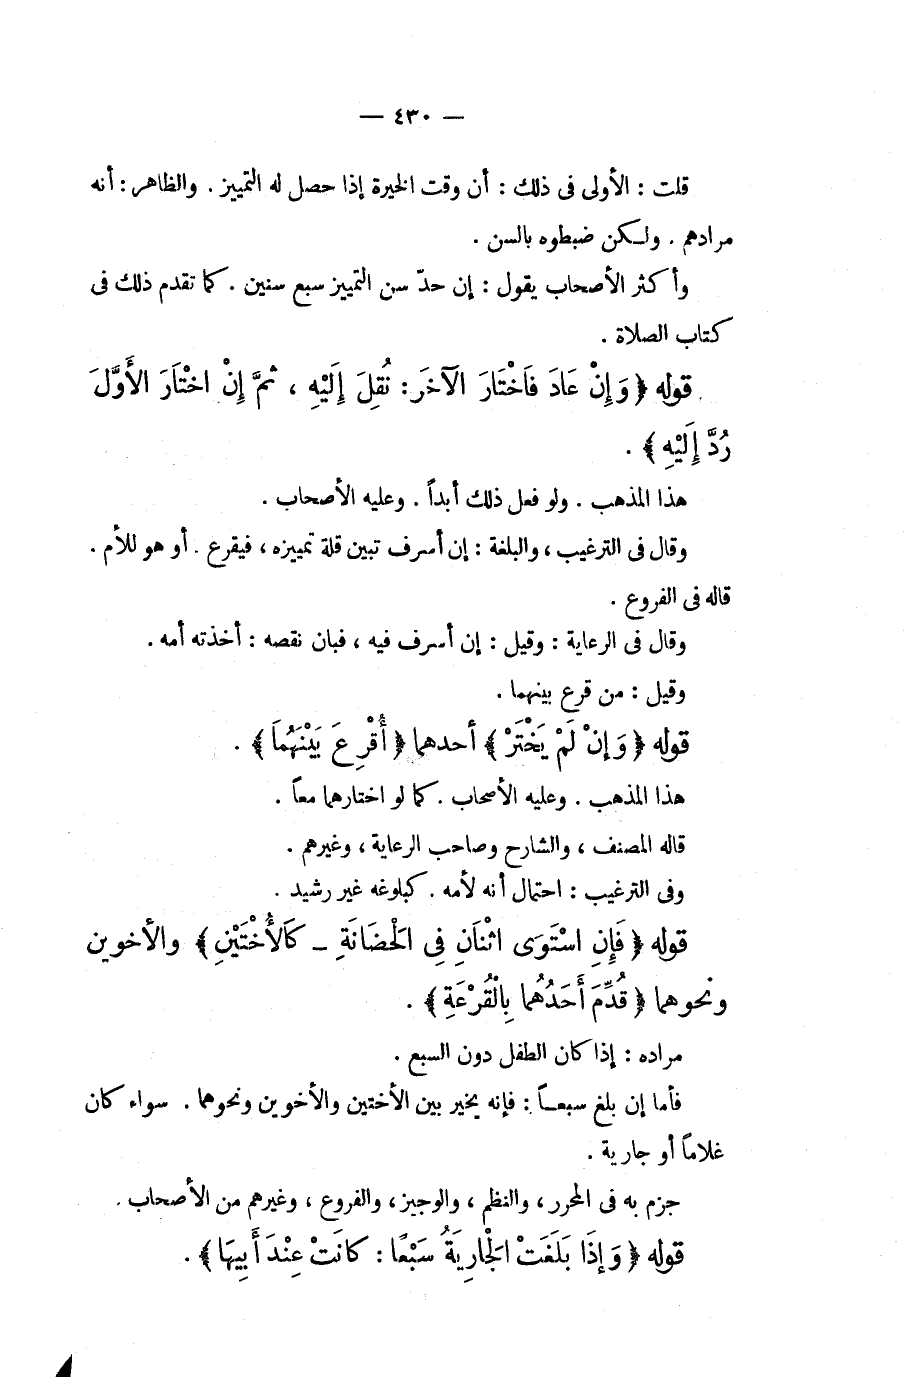 — ٤٣٠ —
قلت : الأولى فى ذلك : أن وقت الخيرة إذا حصل له التمييز . والظاهر : أنه
مرادهم . ولكن ضبطوه بالسن .
وأكثر الأصحاب يقول : إن حدّ سن التمييز سبع سنين . كما تقدم ذلك فى
كتاب الصلاة .
قوله ﴿ وَإِنْ عَادَ فَاخْتَارَ الآخَرَ : نُقِلَ إِلَيْهِ ، ثُمَّ إِنْ اخْتَارَ الأَوَّلَ
رُدَّ إِلَيْهِ ﴾ .
هذا المذهب . ولو فعل ذلك أبداً . وعليه الأصحاب .
وقال فى الترغيب ، والبلغة : إن أسرف تبين قلة تمييزه ، فيقرع . أو هو للأم .
قاله فى الفروع .
وقال فى الرعاية : وقيل : إن أسرف فيه ، فبان نقصه : أخذته أمه .
وقيل : من قرع بينهما .
قوله ﴿ وَإِنْ لَمْ يَخْتَرْ ﴾ أحدهما ﴿ أُقْرِعَ بَيْنَهُمَا ﴾ .
هذا المذهب . وعليه الأصحاب . كما لو اختارهما معاً .
قاله المصنف ، والشارح وصاحب الرعاية ، وغيرهم .
وفى الترغيب : احتمال أنه لأمه . كبلوغه غير رشيد .
قوله ﴿ فَإِنِ اسْتَوَى اثْنَانِ فِى الْحَضَانَةِ – كَالأُخْتَيْنِ ﴾ والأخوين
ونحوهما ﴿ قُدِّمَ أَحَدُهُمَا بِالْقُرْعَةِ ﴾ .
مراده : إذا كان الطفل دون السبع .
فأما إن بلغ سبعــاً : فإنه يخير بين الأختين والأخوين ونحوهما . سواء كان
غلاماً أو جارية .
جزم به فى المحرر ، والنظم ، والوجيز ، والفروع ، وغيرهم من الأصحاب .
قوله ﴿ وَإِذَا بَلَغَتْ الْجَارِيَةُ سَبْعًا : كَانَتْ عِنْدَ أَبِيهَا ﴾ .